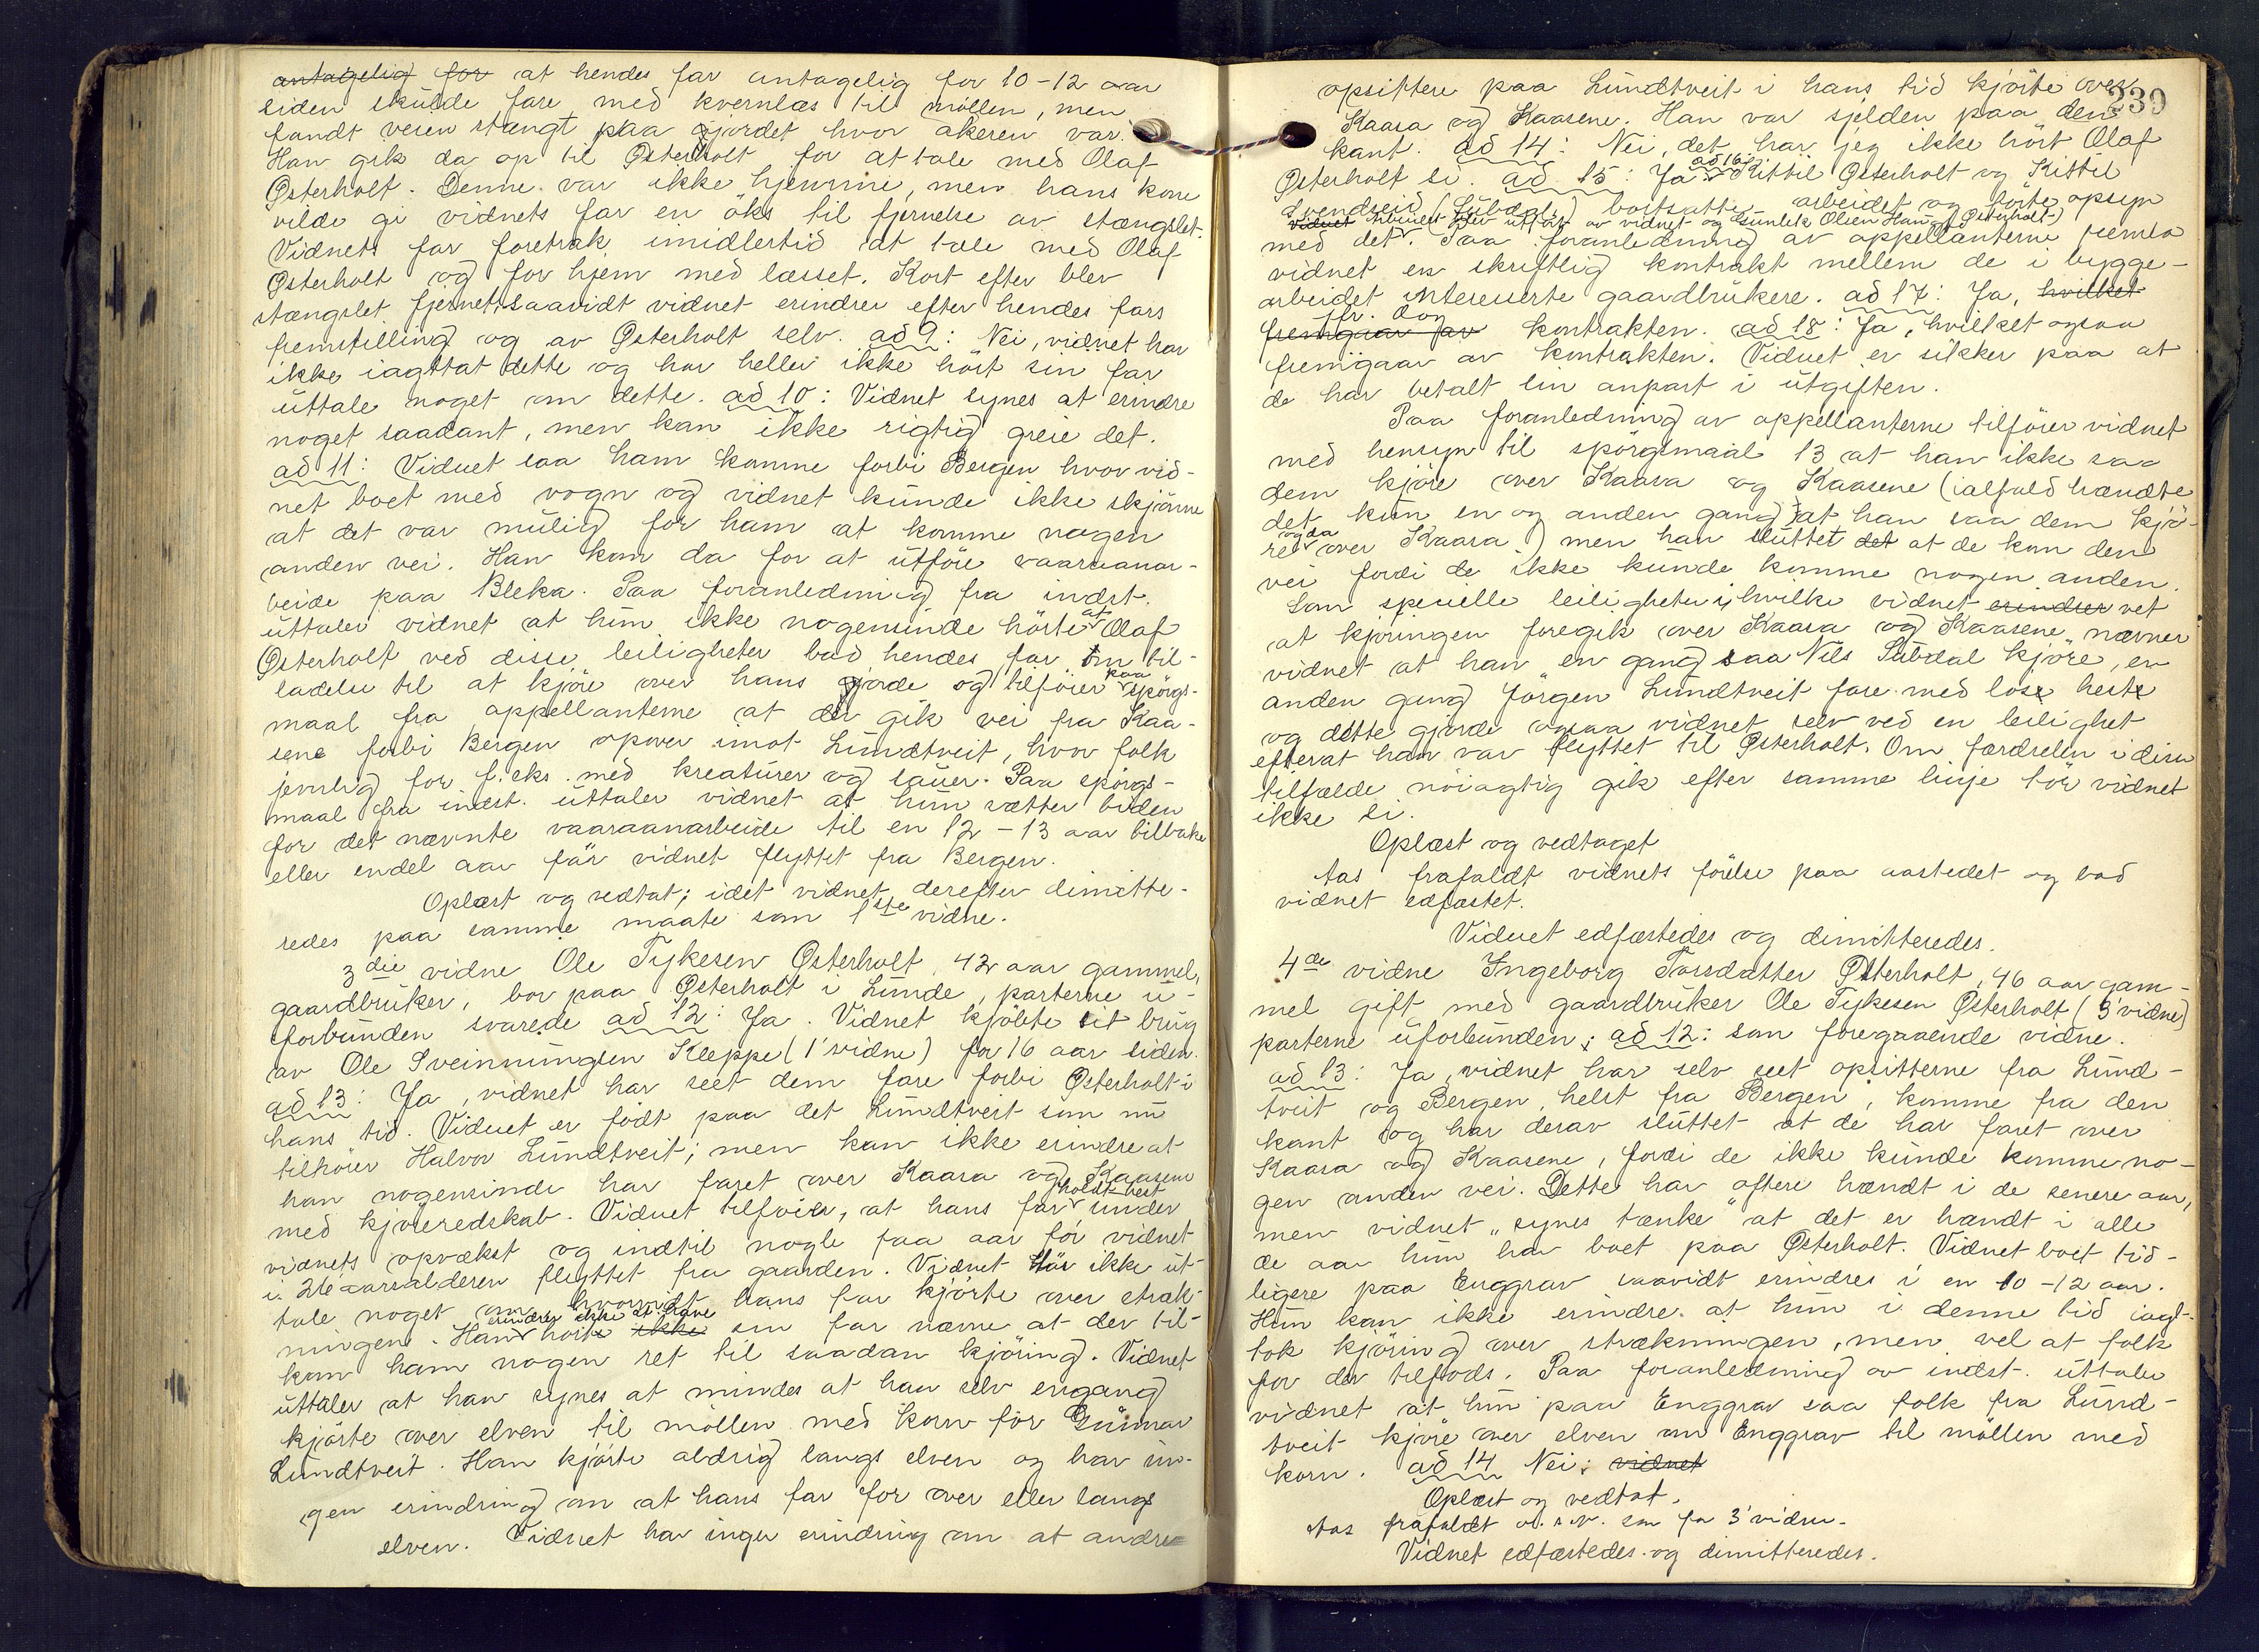 antagelig for at hendes far antagelig for 10-12 aar
siden skulde fare med kvernlas til möllen, men
fandt veien stængt paa gjordet hvor akeren var.
Han gik da op til Østerholt for at tale med Olaf
Østerholt. Denne var ikke hjemme, men hans kone
vilde gi vidnets far en öks til fjernelse av stængslet.
Vidnets far foretrak imidlertid at tale med Olaf
Østerholt og for hjem med læsset. Kort efter blev
stængslet fjernet, saavidt vidnet erindrer efter hendes fars
fremstilling og av Østerholt selv. ad 9: Nei, vidnet har
ikke iagttat dette og har heller ikke hört sin far
uttale noget om dette. ad 10: Vidnet synes at erindre
noget saadant, men kan ikke rigtig greie det.
ad 11: Vidnet saa ham komme forbi Bergen hvor vid-
net boet med vogn og vidnet kunde ikke skjönne
at det var mulig for ham at komme nogen
anden vei. Han kom da for at utföre vaaraanar-
beide paa Bleka. Paa foranledning fra indst.
uttaler vidnet at hun ikke nogensinde hörte at Olaf
Østerholt ved disse leiligheter bad hendes far om til-
ladelse til at kjöre over hans gjorde og tilföier paa spörgs-
maal fra appellanterne at der gik vei fra Kaa-
sene forbi Bergen opover imot Lundtveit, hvor folk
jevnlig for f.eks. med kreaturer og sauer. Paa spörgs-
maal fra indst. uttaler vidnet at hun sætter tiden
for det nævnte vaaraanarbeide til en 12-13 aar tilbake
eller endel aar för vidnet flyttet fra Bergen.
Oplæst og vedtat; idet vidnet derefter dimitte-
redes paa samme maate som 1ste vidne.
3die vidne Ole Tykesen Østerholt, 42 aar gammel,
gaardbruker, bor paa Østerholt i Lunde, parterne u-
forbunden svarede ad 12: Ja. Vidnet kjöbte sit brug
av Ole Sveinungsen Kleppe (1' vidne) for 16 aar siden.
ad 13: Ja, vidnet har seet dem fare forbi Østerholt i
hans tid. Vidnet er födt paa det Lundtveit som nu
tilhörer Halvor Lundtveit; men kan ikke erindre at
han nogensinde har faret over Kaasa og Kaasene
med kjöreredskab. Vidnet tilföier, at hans far holdt hest under
vidnets opvækst og indtil nogle faa aar för vidnet
i 26 aarsalderen flyttet fra gaarden. Vidnet tör ikke ut-
tale noget om hvorvidt hans far kjörte over stræk-
ningen. Han erindrer ikke at have hört ikke sin far nævne at der til-
kom ham nogen ret til saadan kjöring. Vidnet
uttaler at han synes at mindes at han selv engang
kjörte over elven til möllen med korn for Gunnar
Lundtveit. Han kjörte aldrig langs elven og har in-
gen erindring om at hans far for over eller langs
elven. Vidnet har ingen erindring om at andre
239
opsittere paa Lundtveit i hans tid kjörte over
Kaasa og Kaasene. Han var sjelden paa den
kant. ad 14: Nei, det har jeg ikke hört Olaf
Østerholt si. ad 15: Ja. ad 16: Kittil Østerholt og Kittil
Svendseid (Lübdal) bortsatte arbeidet og förte opsyn
vidnet Arbeidet blev utfört av vidnet og Gunleik Olsen Haug (Østerholt)
med det. Paa foranledning av appellanterne fremla
vidnet en skriftlig kontrakt mellem de i bygge-
arbeidet interesserte gaardbrukere. ad 17: Ja, hvilket
fremgaar av jfr. dog kontrakten. ad 18: Ja, hvilket ogsaa
fremgaar av kontrakten. Vidnet er sikker paa at
de har betalt sin anpart i utgiften.
Paa foranledning av appellanterne tilföier vidnet
med hensyn til spörgsmaal 13 at han ikke saa
dem kjöre over Kaasa og Kaasene (ialfald hændte
det kun en og anden gang, at han saa dem kjö-
re ogsaa over Kaasa) men han sluttet det at de kom den
vei fordi de ikke kunde komme nogen anden.
Som specielle leiligheter i hvilke vidnet erindrer vet
at kjöringen foregik over Kaasa og Kaasene nævner
vidnet at han en gang saa Nils Lübdal kjöre, en
anden gang Jörgen Lundtveit fare med löse heste
og dette gjorde ogsaa vidnet selv ved en leilighet
efterat han var flyttet til Østerholt. Om færdselen i disse
tilfælde nöiagtig gik efter samme linje tör vidnet
ikke si.
Oplæst og vedtaget
Aas frafaldt vidnets förelse paa aastedet og bad
vidnet edfæstet.
Vidnet edfæstedes og dimitteredes.
4de vidne Ingeborg Torsdatter Østerholt, 46 aar gam-
mel gift med gaardbruker Ole Tykesen Østerholt (3' vidne)
parterne uforbunden; ad 12: som foregaaende vidne.
ad 13: Ja, vidnet har selv seet opsitterne fra Lund-
tveit og Bergen, helst fra Bergen, komme fra den
kant og har derav sluttet at de har faret over
Kaasa og Kaasene, fordi de ikke kunde komme no-
gen anden vei. Dette har oftere hændt i de senere aar,
men vidnet „synes tænke" at det er hændt i alle
de aar hun har boet paa Østerholt. Vidnet boet tid-
ligere paa Enggrav saavidt erindres i en 10-12 aar.
Hun kan ikke erindre at hun i denne tid iagt-
tok kjöring over strækningen, men vel at folk
for der tilfods. Paa foranledning av indst. uttaler
vidnet at hun paa Enggrav saa folk fra Lund-
tveit kjöre over elven om Enggrav til möllen med
korn. ad 14 Nei. vidnet
Oplæst og vedtat.
Aas frafaldt o.s.v. som for 3' vidne.
Vidnet edfæstedes og dimitteredes.